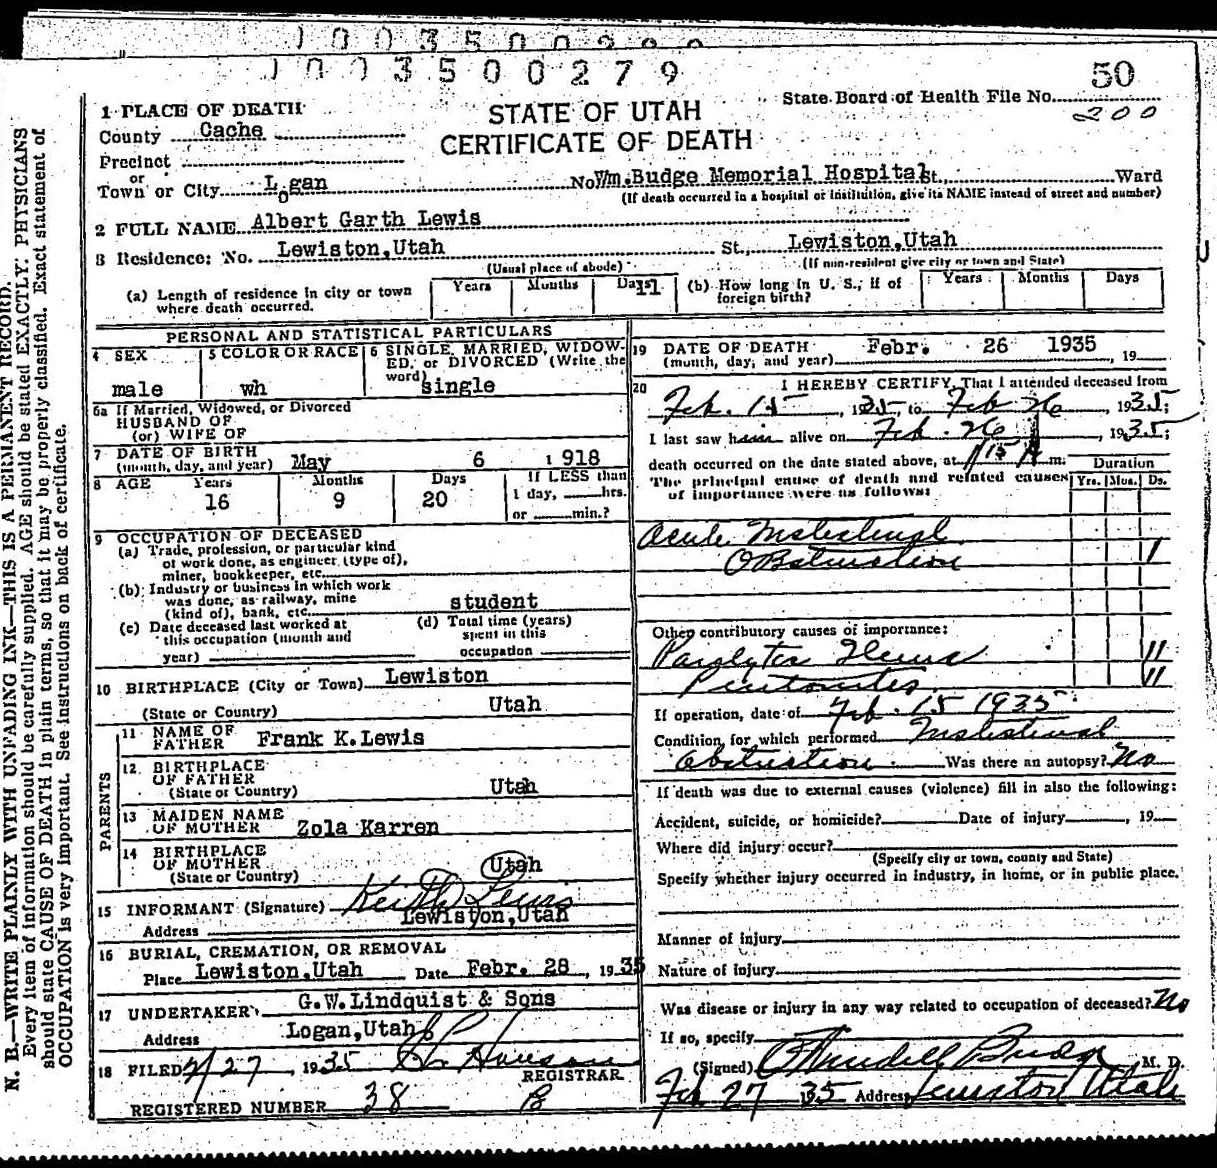 1003500279
50
STATE OF UTAH
CERTIFICATE OF DEATH
State Board of Health File No.
200
1 PLACE OF DEATH
County Cache
Precinct
or
Town or City Logan No. Wm.Budge Memorial Hospital St. Ward
(If death occurred in a hospital or institution, give its NAME instead of street and number)
2 FULL NAME Albert Garth Lewis
3 Residence: No. Lewiston,Utah St., Lewiston,Utah
(Usual place of abode) (If non-resident give city or town and State)
(a) Length of residence in city or town where death occurred. Years Months Days 11 (b) How long in U. S., if of foreign birth? Years Months Days
PERSONAL AND STATISTICAL PARTICULARS
4 SEX male
5 COLOR OR RACE wh
6 SINGLE, MARRIED, WIDOWED, or DIVORCED (Write the word) single
6a If Married, Widowed, or Divorced
HUSBAND OF
(or) WIFE OF
7 DATE OF BIRTH
(month, day, and year) May 6 1918
8 AGE Years 16 Months 9 Days 20 If LESS than
1 day, hrs.
or min.?
9 OCCUPATION OF DECEASED
(a) Trade, profession, or particular kind
of work done, as engineer (type of),
miner, bookkeeper, etc.
(b) Industry or business in which work
was done, as railway, mine
(kind of), bank, etc. student
(c) Date deceased last worked at
this occupation (month and
year)
(d) Total time (years)
spent in this
occupation
10 BIRTHPLACE (City or Town) Lewiston
(State or Country) Utah
PARENTS
11 NAME OF
FATHER Frank K.Lewis
12 BIRTHPLACE
OF FATHER
(State or Country) Utah
13 MAIDEN NAME
OF MOTHER Zola Karren
14 BIRTHPLACE
OF MOTHER
(State or Country) Utah
15 INFORMANT (Signature) Keith Lewis
Address Lewiston,Utah
16 BURIAL, CREMATION, OR REMOVAL
Place Lewiston,Utah Date Febr. 28, 1935
17 UNDERTAKER G.W.Lindquist & Sons
Address Logan,Utah
18 FILED 2/27, 1935
REGISTRAR
REGISTERED NUMBER 38
19 DATE OF DEATH
(month, day, and year) Febr. 26 1935, 19
20 I HEREBY CERTIFY, That I attended deceased from
Feb. 15, 1935, to Feb 26, 1935;
I last saw him alive on Feb. 26, 1935;
death occurred on the date stated above, at 115 A m.
The principal cause of death and related causes
of importance were as follows:
Duration
Yrs. Mos. Ds.
Acute Intestinal
Obstruction
Other contributory causes of importance:
Paralytic Ileus 11
Peritonitis 11
If operation, date of Feb. 15 1935
Condition for which performed Intestinal
Obstruction Was there an autopsy? No
If death was due to external causes (violence) fill in also the following:
Accident, suicide, or homicide? Date of injury, 19
Where did injury occur?
(Specify city or town, county and State)
Specify whether injury occurred in industry, in home, or in public place.
Manner of injury
Nature of injury
Was disease or injury in any way related to occupation of deceased? No
If so, specify
(Signed) Budge M. D.
Feb 27 1935 Address Lewiston Utah
N. B.—WRITE PLAINLY WITH UNFADING INK—THIS IS A PERMANENT RECORD.
Every item of information should be carefully supplied. AGE should be stated EXACTLY. PHYSICIANS
should state CAUSE OF DEATH in plain terms, so that it may be properly classified. Exact statement of
OCCUPATION is very important. See instructions on back of certificate.